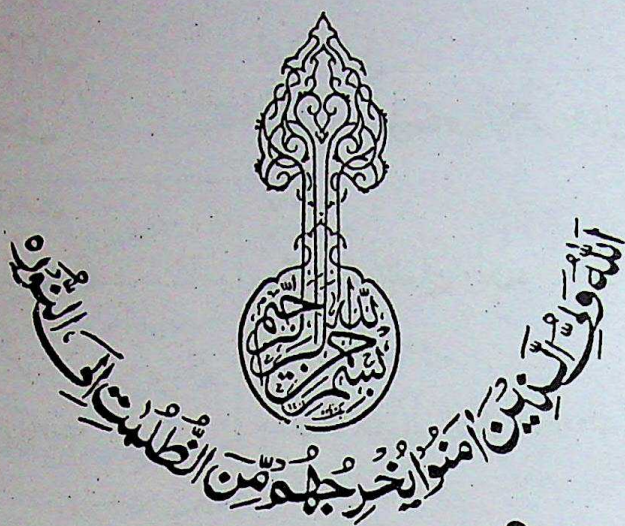 بسم الله الرحمن الرحيم
اَللّٰهُ وَلِىُّ الَّذِيْنَ اٰمَنُوْا يُخْرِجُهُمْ مِّنَ الظُّلُمٰتِ اِلَى النُّوْرِ